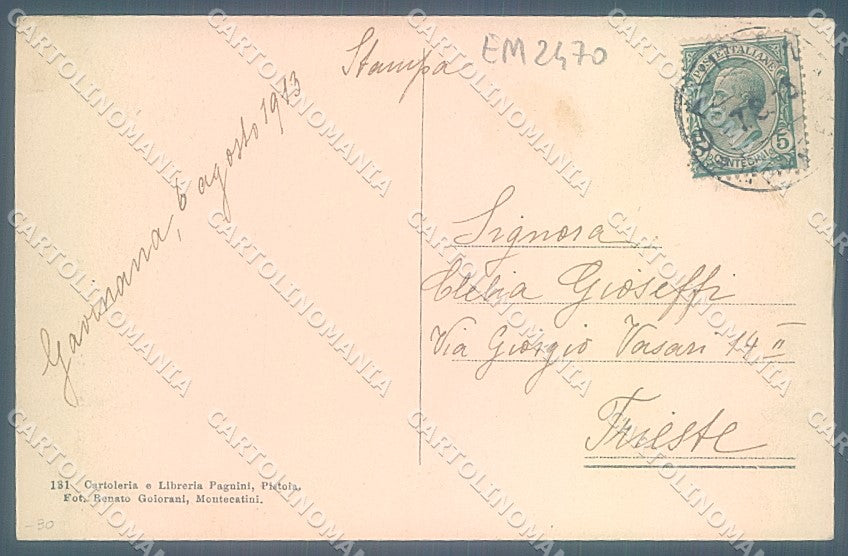 Stampa
EM2470
POSTE ITALIANE
5
CENTESIMI
Gavinana, 6 agosto 1913
Signora
Clelia Gioseffi
Via Giorgio Vasari 14 II
Trieste
131 Cartoleria e Libreria Pagnini, Pistoia.
Fot. Renato Goiorani, Montecatini.
-30
CARTOLINOMANIA